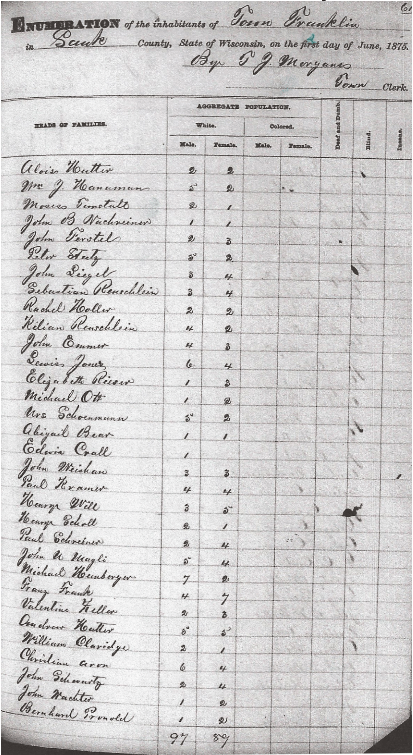 ENUMERATION of the inhabitants of Town Franklin
in Sauk County, State of Wisconsin, on the first day of June, 1875.
By T J Morgans
Town Clerk.
HEADS OF FAMILIES. AGGREGATE POPULATION. Deaf and Dumb. Blind. Insane.
White. Colored.
Male. Female. Male. Female.
Alois Hutter 2 2
Mrs J Hanaman 5 2
Moses Tunstall 2 1
John B Wachreiner 1 1
John Forstel 2 3
Peter 5 2
John Liegel 3 4
Sebastian Reuschlein 3 4
Rachel Holler 2 2
Kilian Reuschlein 4 2
John Emmer 4 3
Lewis Jones 6 4
Elizabeth Rieser 1 3
Michael Ott 1 2
Urs Schoenmann 5 2
Abigail Bear 1 1
Edwin Crall 1
John Weishan 3 3
Paul Kramer 4 4
George Will 3 5
George Scholl 2 1
Paul Schreiner 2 4
John U Nagli 5 4
Michael Heuberger 7 2
Franz Frank 4 7
Valentine Keller 2 3
Andrew Hutter 5 5
William Claridge 2 1
Christian Aron 6 4
John Schwartz 2 4
John Wachter 1 2
Bernhard 1 2
97 89